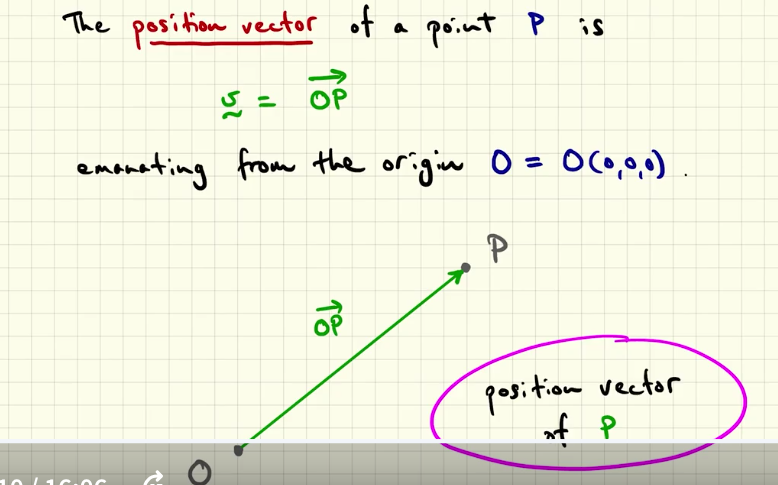 The position vector of a point P is
v = OP
emanating from the origin O = O(0,0,0).
P
OP
position vector
of P
O